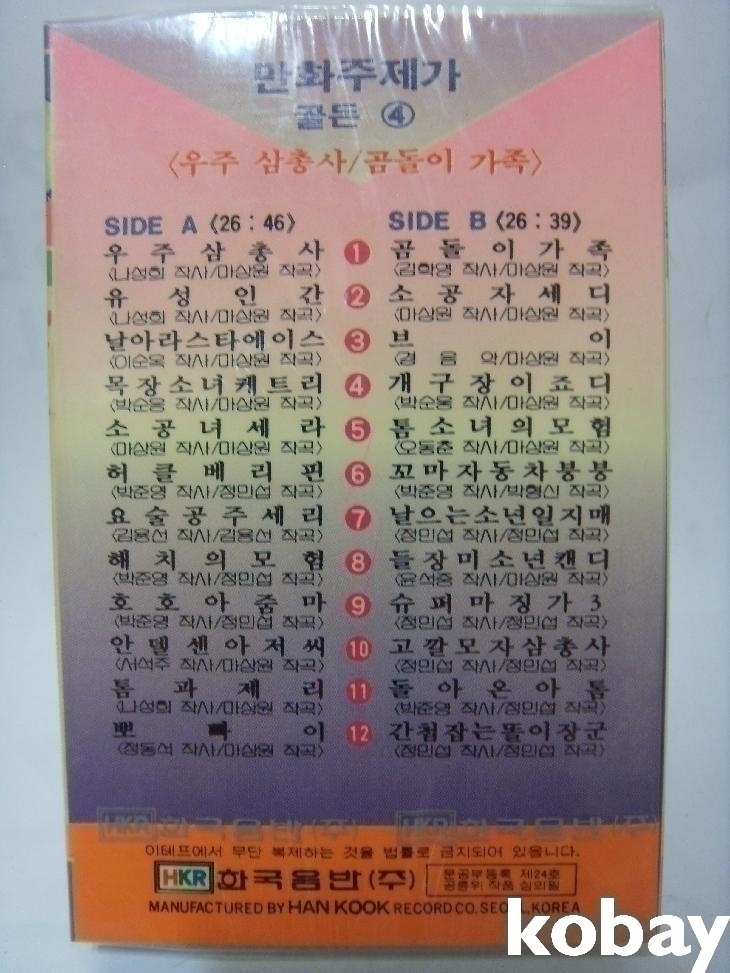 만화주제가
골든 ④
〈우주 삼총사/곰돌이 가족〉
SIDE A 〈26 : 46〉
우주삼총사
〈나성희 작사/마상원 작곡〉
유성인간
〈나성희 작사/마상원 작곡〉
날아라스타에이스
〈이순옥 작사/마상원 작곡〉
목장소녀케트리
〈박순웅 작사/마상원 작곡〉
소공녀세라
〈마상원 작사/마상원 작곡〉
허클베리핀
〈박준영 작사/정민섭 작곡〉
요술공주세리
〈김용선 작사/김용선 작곡〉
해치의모험
〈박준영 작사/정민섭 작곡〉
호호아줌마
〈박준영 작사/정민섭 작곡〉
안델센아저씨
〈서석주 작사/마상원 작곡〉
톰과제리
〈나성희 작사/마상원 작곡〉
뽀빠이
〈정동석 작사/마상원 작곡〉
1
2
3
4
5
6
7
8
9
10
11
12
SIDE B 〈26 : 39〉
곰돌이가족
〈김학영 작사/마상원 작곡〉
소공자세디
〈마상원 작사/마상원 작곡〉
브이
〈경음악/마상원 작곡〉
개구장이죠디
〈박순웅 작사/마상원 작곡〉
톰소녀의모험
〈오동춘 작사/마상원 작곡〉
꼬마자동차붕붕
〈박준영 작사/박형신 작곡〉
날으는소년일지매
〈정민섭 작사/정민섭 작곡〉
들장미소년캔디
〈윤석중 작사/마상원 작곡〉
슈퍼마징가3
〈정민섭 작사/정민섭 작곡〉
고깔모자삼총사
〈정민섭 작사/정민섭 작곡〉
돌아온아톰
〈박준영 작사/정민섭 작곡〉
간첩잡는똘이장군
〈정민섭 작사/정민섭 작곡〉
HKR 한국음반(주) HKR 한국음반(주)
이테프에서 무단 복제하는 것을 법률로 금지되어 있읍니다.
HKR 한국음반(주)
문공부등록 제24호
공륜위 작품 심의필
MANUFACTURED BY HAN KOOK RECORD CO. SEOUL, KOREA
kobay